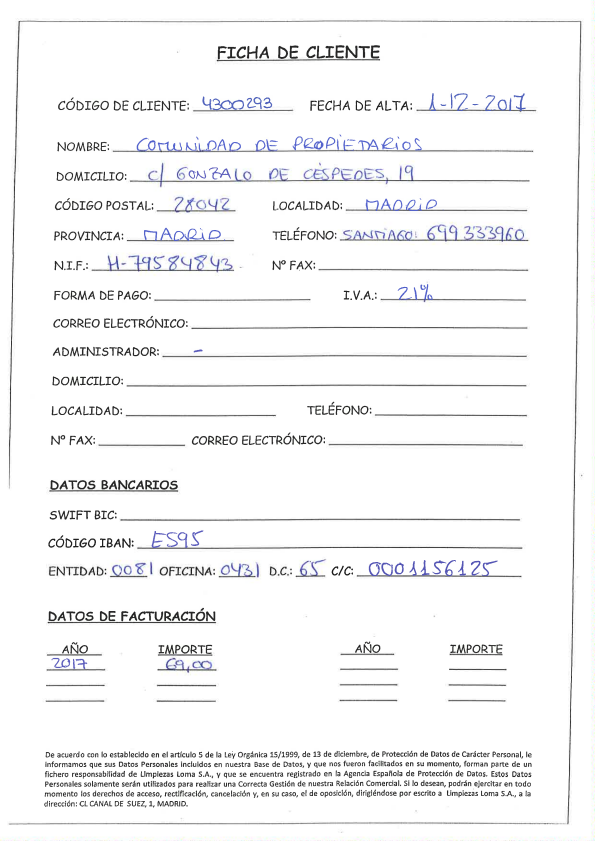 FICHA DE CLIENTE
CÓDIGO DE CLIENTE: 4300293 FECHA DE ALTA: 1-12-2017
NOMBRE: COMUNIDAD DE PROPIETARIOS
DOMICILIO: C/ GONZALO DE CÉSPEDES, 19
CÓDIGO POSTAL: 28042 LOCALIDAD: MADRID
PROVINCIA: MADRID TELÉFONO: SANTIAGO: 699 333960
N.I.F.: H-79584843 Nº FAX:
FORMA DE PAGO: I.V.A.: 21%
CORREO ELECTRÓNICO:
ADMINISTRADOR: -
DOMICILIO:
LOCALIDAD: TELÉFONO:
Nº FAX: CORREO ELECTRÓNICO:
DATOS BANCARIOS
SWIFT BIC:
CÓDIGO IBAN: ES95
ENTIDAD: 0081 OFICINA: 0431 D.C.: 65 C/C: 0001156125
DATOS DE FACTURACIÓN
AÑO IMPORTE AÑO IMPORTE
2017 69,00
De acuerdo con lo establecido en el artículo 5 de la Ley Orgánica 15/1999, de 13 de diciembre, de Protección de Datos de Carácter Personal, le
informamos que sus Datos Personales incluidos en nuestra Base de Datos, y que nos fueron facilitados en su momento, forman parte de un
fichero responsabilidad de Limpiezas Loma S.A., y que se encuentra registrado en la Agencia Española de Protección de Datos. Estos Datos
Personales solamente serán utilizados para realizar una Correcta Gestión de nuestra Relación Comercial. Si lo desean, podrán ejercitar en todo
momento los derechos de acceso, rectificación, cancelación y, en su caso, el de oposición, dirigiéndose por escrito a Limpiezas Loma S.A., a la
dirección: CL CANAL DE SUEZ, 1, MADRID.